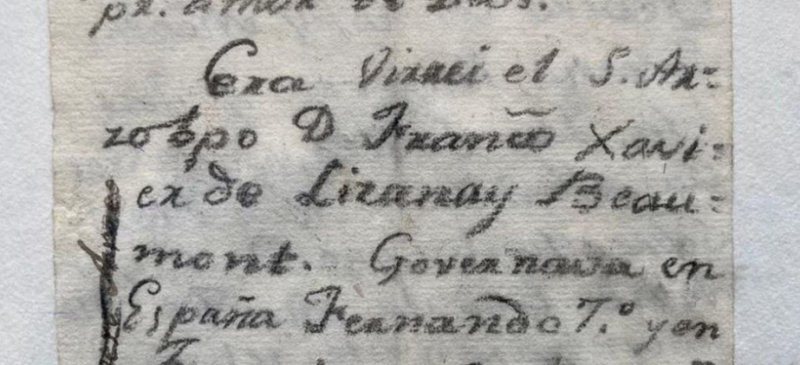 px. amor de Dios.
Era Virrei el S. Ar=
zobpo D Franco Xavi=
er de Lizanay Beau=
mont. Governava en
España Fernando 7.º y en